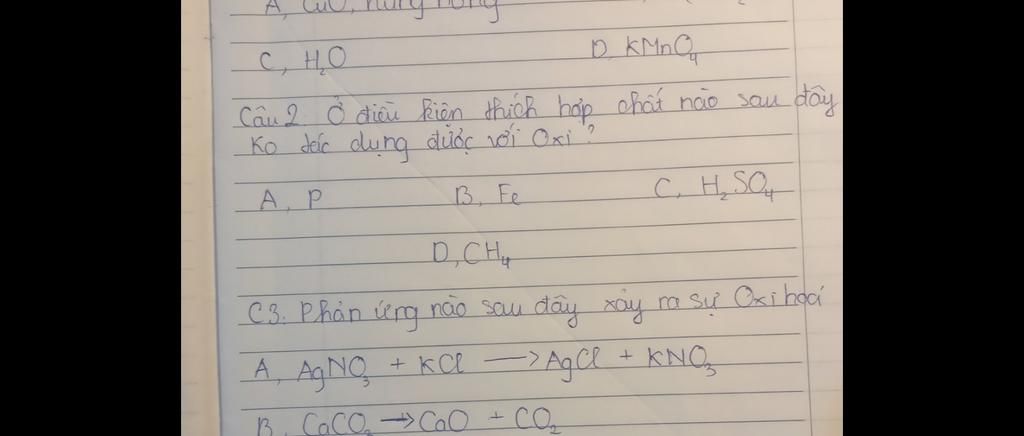 A, CuO, nung nóng
C, H₂O D, KMnO₄
Câu 2. Ở điều kiện thích hợp chất nào sau đây
Ko tác dụng được với Oxi?
A, P B, Fe C, H₂SO₄
D, CH₄
C3. Phản ứng nào sau đây xảy ra sự Oxi hoá
A, AgNO₃ + KCl → AgCl + KNO₃
B, CaCO₃ → CaO + CO₂